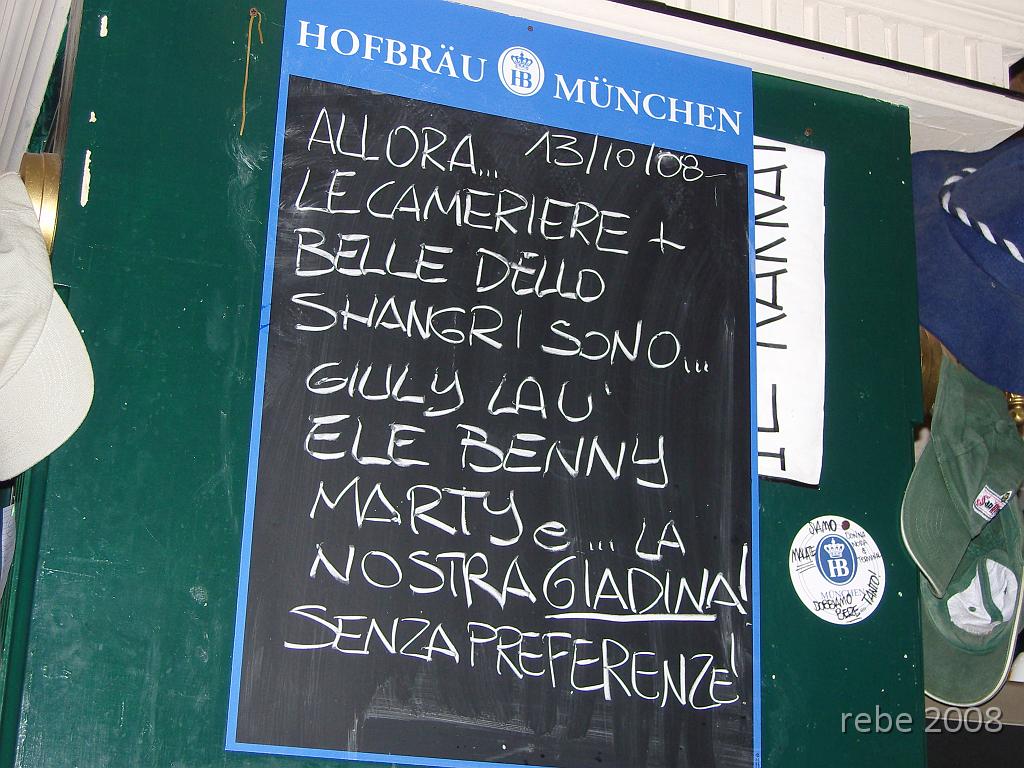 HOFBRÄU HB MÜNCHEN
ALLORA... 13/10/08
LE CAMERIERE +
BELLE DELLO
SHANGRI SONO...
GIULY LAU'
ELE BENNY
MARTY e... LA
NOSTRA GIADINA!
SENZA PREFERENZE!
IL
SIAMO
MALATE
DONNA
HB
MÜNCHEN
DOBBIAMO
BERE
TANTO!
rebe 2008